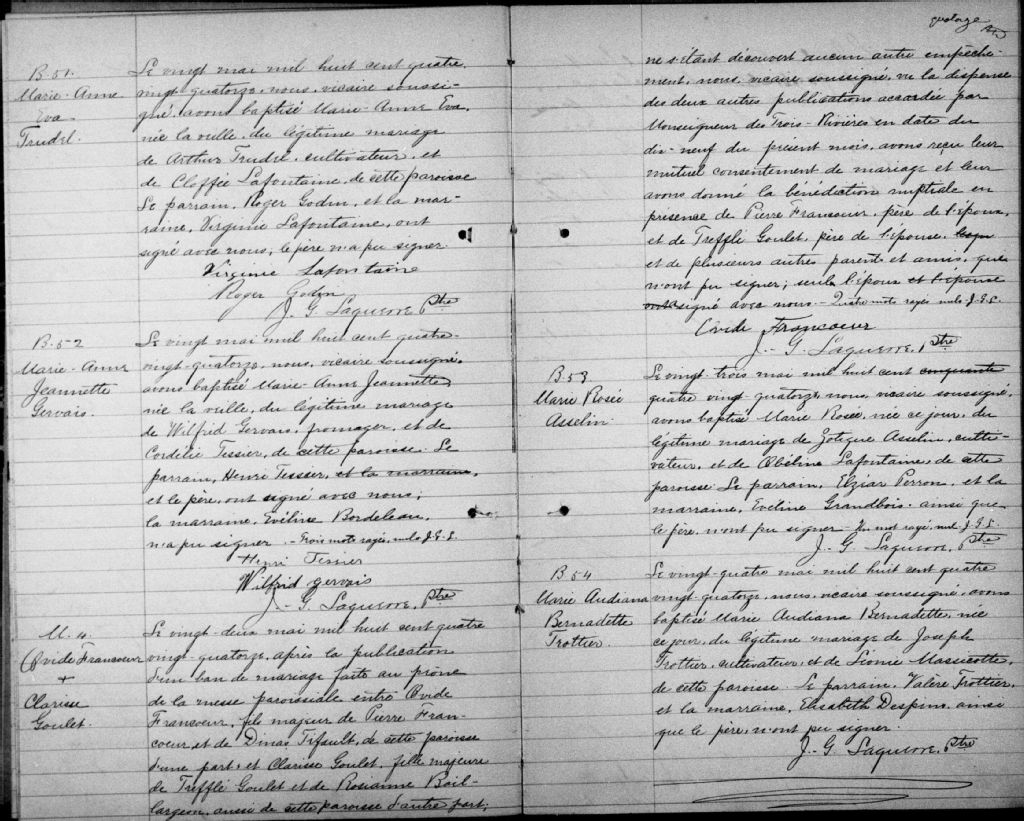 B. 51.
Marie-Anne
Eva
Trudel.
Le vingt mai mil huit cent quatre
vingt quatorze, nous, vicaire soussi-
gné, avons baptisé Marie-Anne Eva,
née la veille, du légitime mariage
de Arthur Trudel, cultivateur, et
de Cloffée Lafontaine, de cette paroisse
Le parrain, Roger Godin, et la mar-
raine, Virginie Lafontaine, ont
signé avec nous, le père n'a pu signer
Virginie Lafontaine
Roger Godin
J. G. Laquerre, Ptre
B. 52
Marie-Anne
Jeannette
Gervais.
Le vingt mai mil huit cent quatre-
vingt-quatorze, nous, vicaire soussigné,
avons baptisé Marie-Anne Jeannette
née la veille, du légitime mariage
de Wilfrid Gervais, fromager, et de
Cordélie Tessier, de cette paroisse. Le
parrain, Henri Tessier, et la marraine,
et le père, ont signé avec nous;
la marraine, Eveline Bordeleau,
n'a pu signer. - Trois mots rayés, nuls J. G. L.
Henri Tessier
Wilfrid gervais
J.-G. Laquerre, Ptre
M. 4.
Ovide Francoeur
+
Clarisse
Goulet.
Le vingt-deux mai mil huit cent quatre
vingt-quatorze, après la publication
d'un ban de mariage faite au prône
de la messe paroissiale entre Ovide
Francoeur, fils majeur de Pierre Fran-
coeur, et de Dinas Tifault, de cette paroisse
d'une part; et Clarisse Goulet, fille majeure
de Trefflé Goulet et de Rosianne Bail-
largeon, aussi de cette paroisse d'autre part;
ne s'étant découvert aucun autre empêche-
ment, nous, vicaire soussigné, vu la dispense
des deux autres publications accordée par
Monseigneur des Trois-Rivières en date du
dix-neuf du présent mois, avons reçu leur
mutuel consentement de mariage et leur
avons donné la bénédiction nuptiale en
présence de Pierre Francoeur, père de l'époux,
et de Treffle Goulet, père de l'épouse,
et de plusieurs autres parents et amis, qui
n'ont pu signer; seul l'époux et l'épouse
ont signé avec nous - Quatre mots rayés nuls J. G. L.
Ovide Francoeur
J.-G. Laquerre, Ptre
B. 53
Marie Rosée
Asselin
Le vingt-trois mai mil huit cent cinquante
quatre vingt-quatorze, nous, vicaire soussigné,
avons baptisé Marie Rosée, née ce jour, du
légitime mariage de Zotique Asselin, culti-
vateur, et de Obéline Lafontaine, de cette
paroisse. Le parrain, Elzéar Perron, et la
marraine, Eveline Grandbois, ainsi que
le père, n'ont pu signer - Un mot rayé, nul J. G. L.
J.-G. Laquerre, Ptre
B. 54
Marie Audiana
Bernadette
Trottier.
Le vingt-quatre mai mil huit cent quatre
vingt-quatorze, nous, vicaire soussigné, avons
baptisé Marie Audiana Bernadette, née
ce jour, du légitime mariage de Joseph
Trottier, cultivateur, et de Léonie Massicotte,
de cette paroisse. Le parrain, Valère Trottier,
et la marraine, Elisabeth Despins, ainsi
que le père, n'ont pu signer
J.-G. Laquerre, Ptre